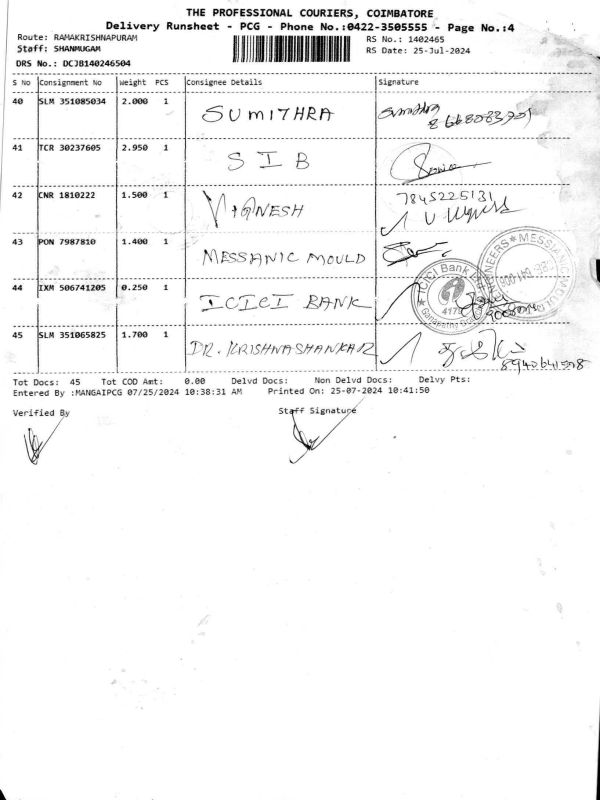 THE PROFESSIONAL COURIERS, COIMBATORE
Delivery Runsheet - PCG - Phone No.:0422-3505555 - Page No.:4
Route: RAMAKRISHNAPURAM
RS No.: 1402465
Staff: SHANMUGAM
RS Date: 25-Jul-2024
DRS No.: DCJB140246504
S No Consignment No Weight PCS Consignee Details Signature
40 SLM 351085034 2.000 1 SUMITHRA Sumithra
41 TCR 30237605 2.950 1 SIB
42 CNR 1810222 1.500 1 VIGNESH 7845225131
43 PON 7987810 1.400 1 MESSANIC MOULD
44 IXM 506741205 0.250 1 ICICI BANK
ICICI Bank
45 SLM 351065825 1.700 1 DR. KRISHNASHANKAR
Tot Docs: 45 Tot COD Amt: 0.00 Delvd Docs: Non Delvd Docs: Delvy Pts:
Entered By :MANGAIPCG 07/25/2024 10:38:31 AM Printed On: 25-07-2024 10:41:50
Verified By Staff Signature